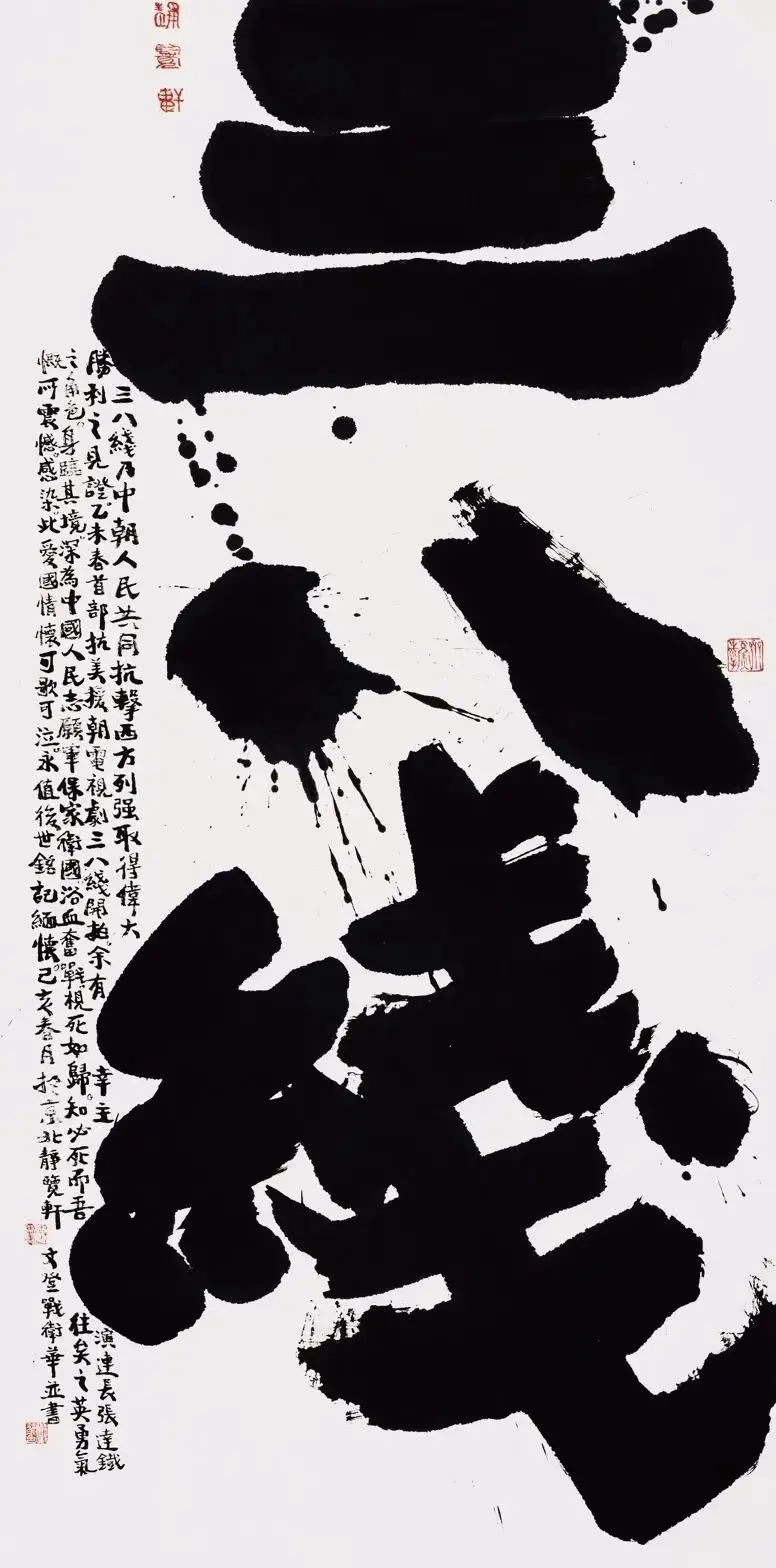 三八綫
三八綫乃中朝人民共同抗擊西方列强取得偉大
勝利之見證乙未春首部抗美援朝電視劇三八綫開拍余有幸主演連長張達鐵
之角色身臨其境深為中國人民志願軍保家衛國浴血奮戰視死如歸知必死而吾往矣之英勇氣
慨所震憾感染此愛國情懷可歌可泣永值後世銘記緬懷己亥春月於京北靜覽軒文堂戰衛華並書
靜覽軒